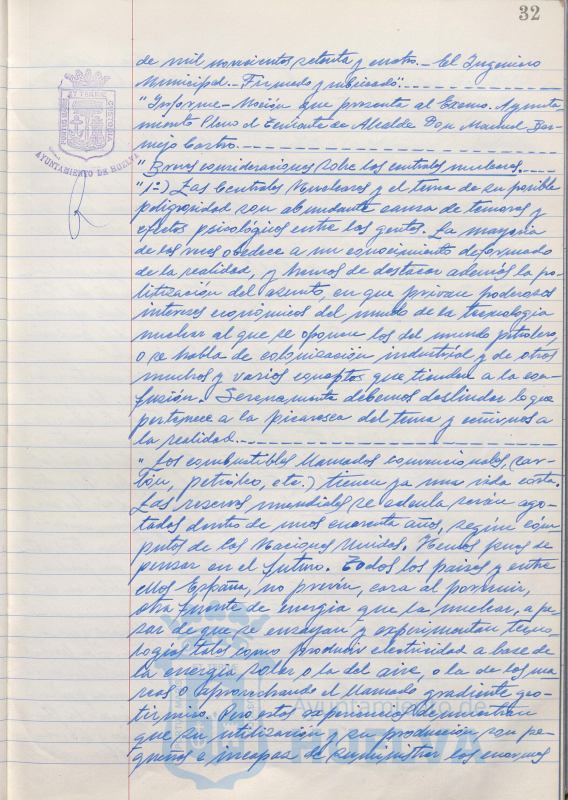 32
de mil novecientos setenta y cuatro.- El Ingeniero
Municipal.- Firmado y rubricado".
"Informe-Moción que presenta al Excmo. Ayunta-
miento Pleno el Teniente de Alcalde Don Manuel Ber-
mejo Castro.
"Breves consideraciones sobre las centrales nucleares.
"1º) Las Centrales Nucleares y el tema de su posible
peligrosidad son abundante causa de temores y
efectos psicológicos entre las gentes. La mayoría
de las veces obedece a un conocimiento deformado
de la realidad, y hemos de destacar además la po-
litización del asunto, en que privan poderosos
intereses económicos del mundo de la tecnología
nuclear al que se oponen los del mundo petrolero,
o se habla de colonización industrial y de otros
muchos y varios conceptos que tienden a la con-
fusión. Serenamente debemos deslindar lo que
pertenece a la picaresca del tema y ceñirnos a
la realidad.
"Los combustibles llamados convencionales, (car-
bón, petróleo, etc.) tienen ya una vida corta.
Las reservas mundiales se calcula serán ago-
tadas dentro de unos cuarenta años, según cóm-
putos de las Naciones Unidas. Hemos pues de
pensar en el futuro. Todos los países y entre
ellos España, no prevén, cara al porvenir,
otra fuente de energía que la nuclear, a pe-
sar de que se ensayan y experimentan tecno-
logías tales como producir electricidad a base de
la energía solar o la del aire, o la de las ma-
reas o aprovechando el llamado gradiente geo-
térmico. Pero estas experiencias demuestran
que su utilización y su producción son pe-
queñas e incapaz de suministrar las enormes
AYUNTAMIENTO DE HUELVA
Ayuntamiento de
HUELVA